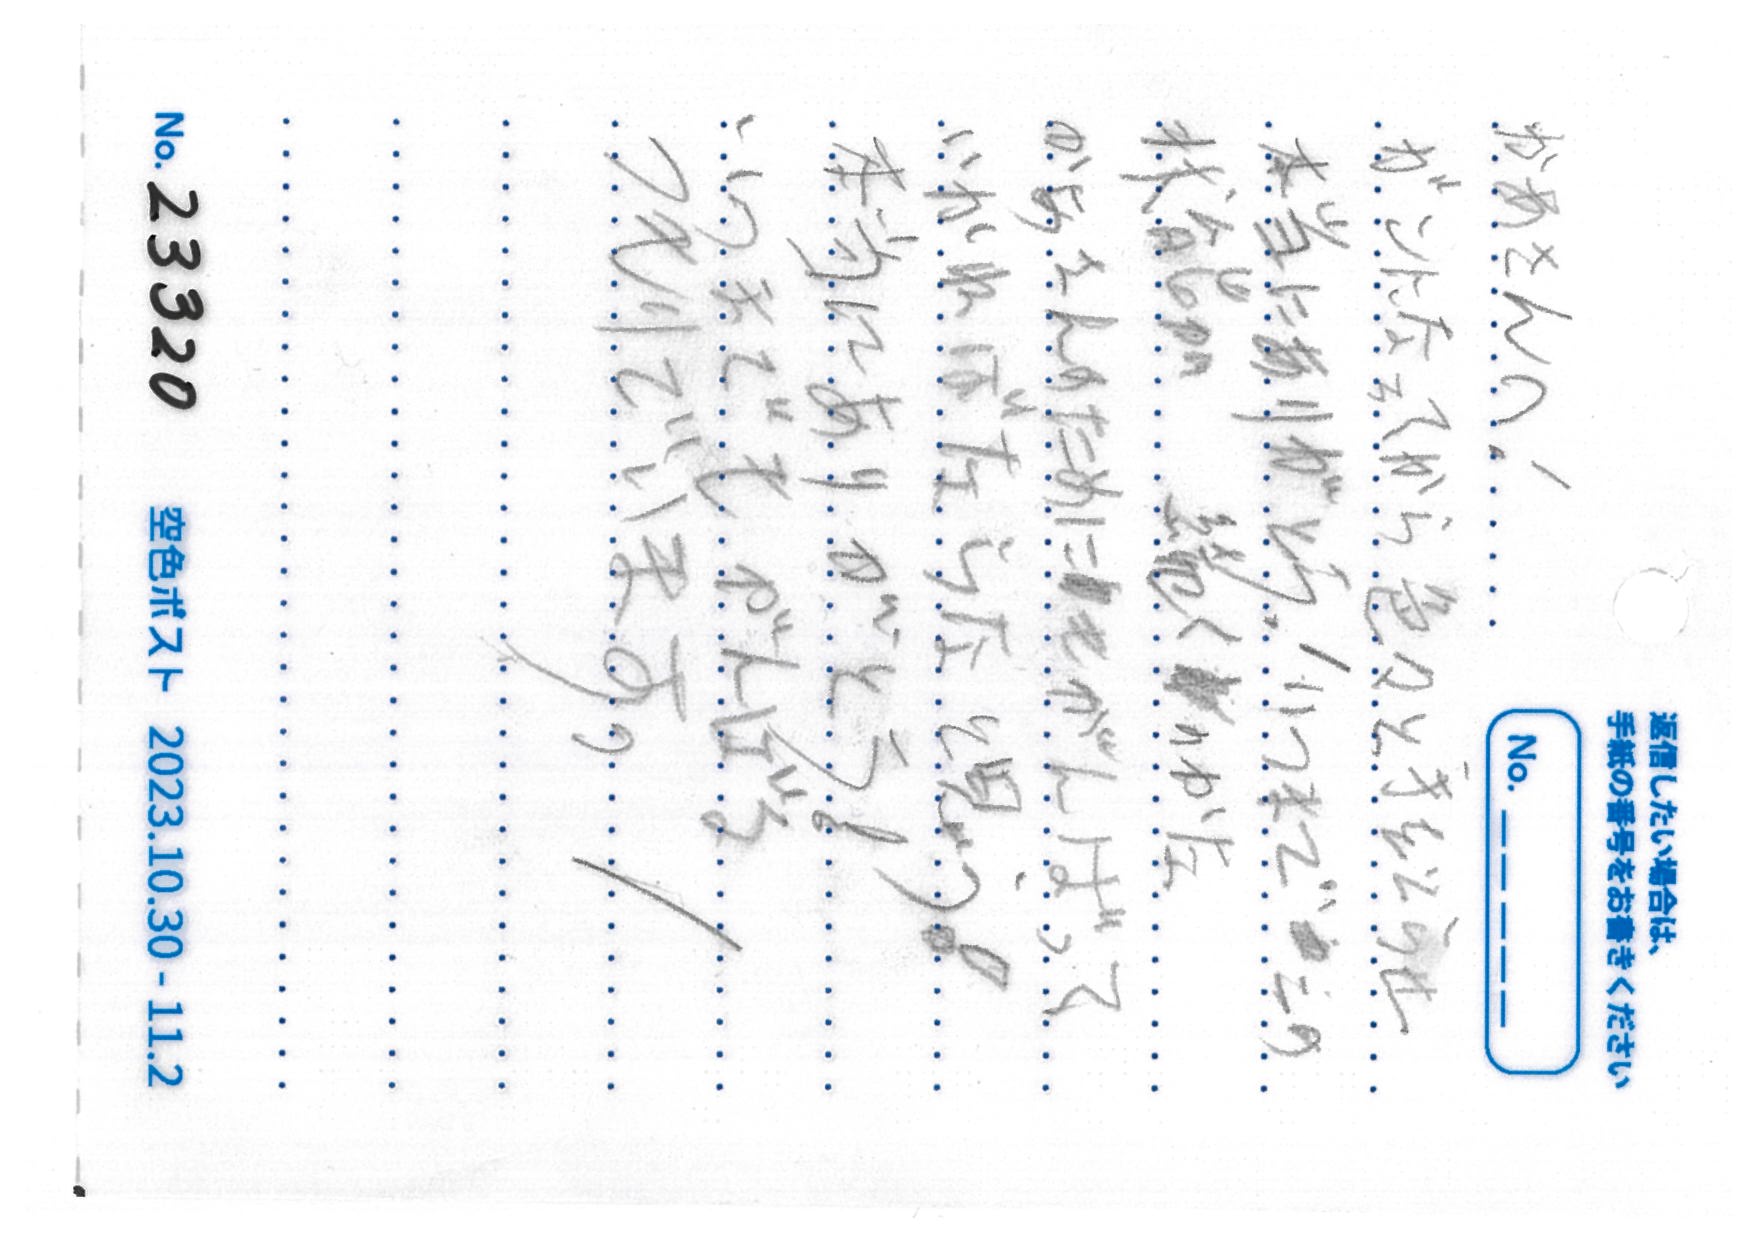 返信したい場合は、
手紙の番号をお書きください
No.
かあさんへ!
ガンになってから色々と手をとらせ
本当にありがとう!いつまでこの
状態が 続くのかな
かあさんのためにもがんばって
いかねばならなと思う!
本当にありがとう!
いつまでもがんばる
つもりでいます。
No. 23320
空色ポスト 2023.10.30 - 11.2